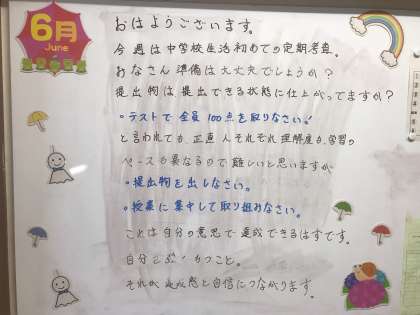 6月
June
おはようございます。
今週は中学校生活初めての定期考査。
みなさん準備は大丈夫でしょうか?
提出物は提出できる状態に仕上がってますか?
・テストで全員100点を取りなさい!
と言われても正直人それぞれ理解度も学習の
ペースも異なるので難しいと思いますが
・提出物を出しなさい。
・授業に集中して取り組みなさい。
ことは自分の意思で達成できるはずです。
自分に
かつこと。
それが達成感と自信につながります。